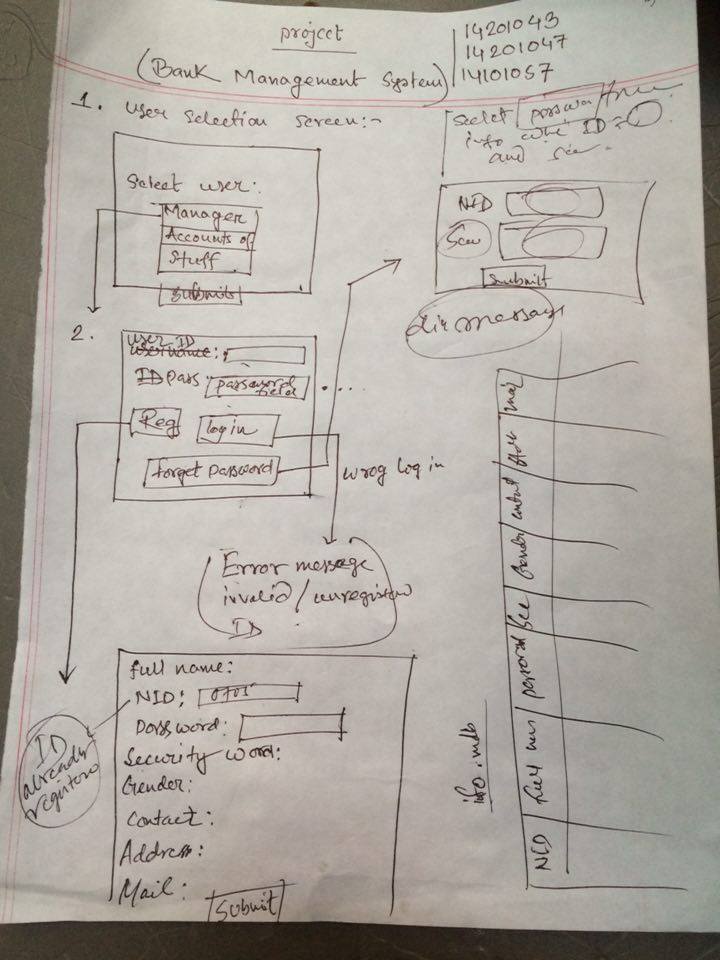 project
(Bank Management System)
14201043
14201047
14101057
1. User Selection Screen:-
Select user:
Manager
Accounts of
Stuff
Submit
select passwor from
info whe ID =
and
NID
Sec
Submit
message
2.
User ID
username:
ID pass password field
Reg
login
forget password
wrog log in
Error message
invalid/unregistered
ID
Full name:
NID: 0705
Password:
Security word:
Gender:
Contact:
Address:
Mail:
Submit
ID
already
registere
info.mdb
NID
Full
password
Sec
Gender
contact